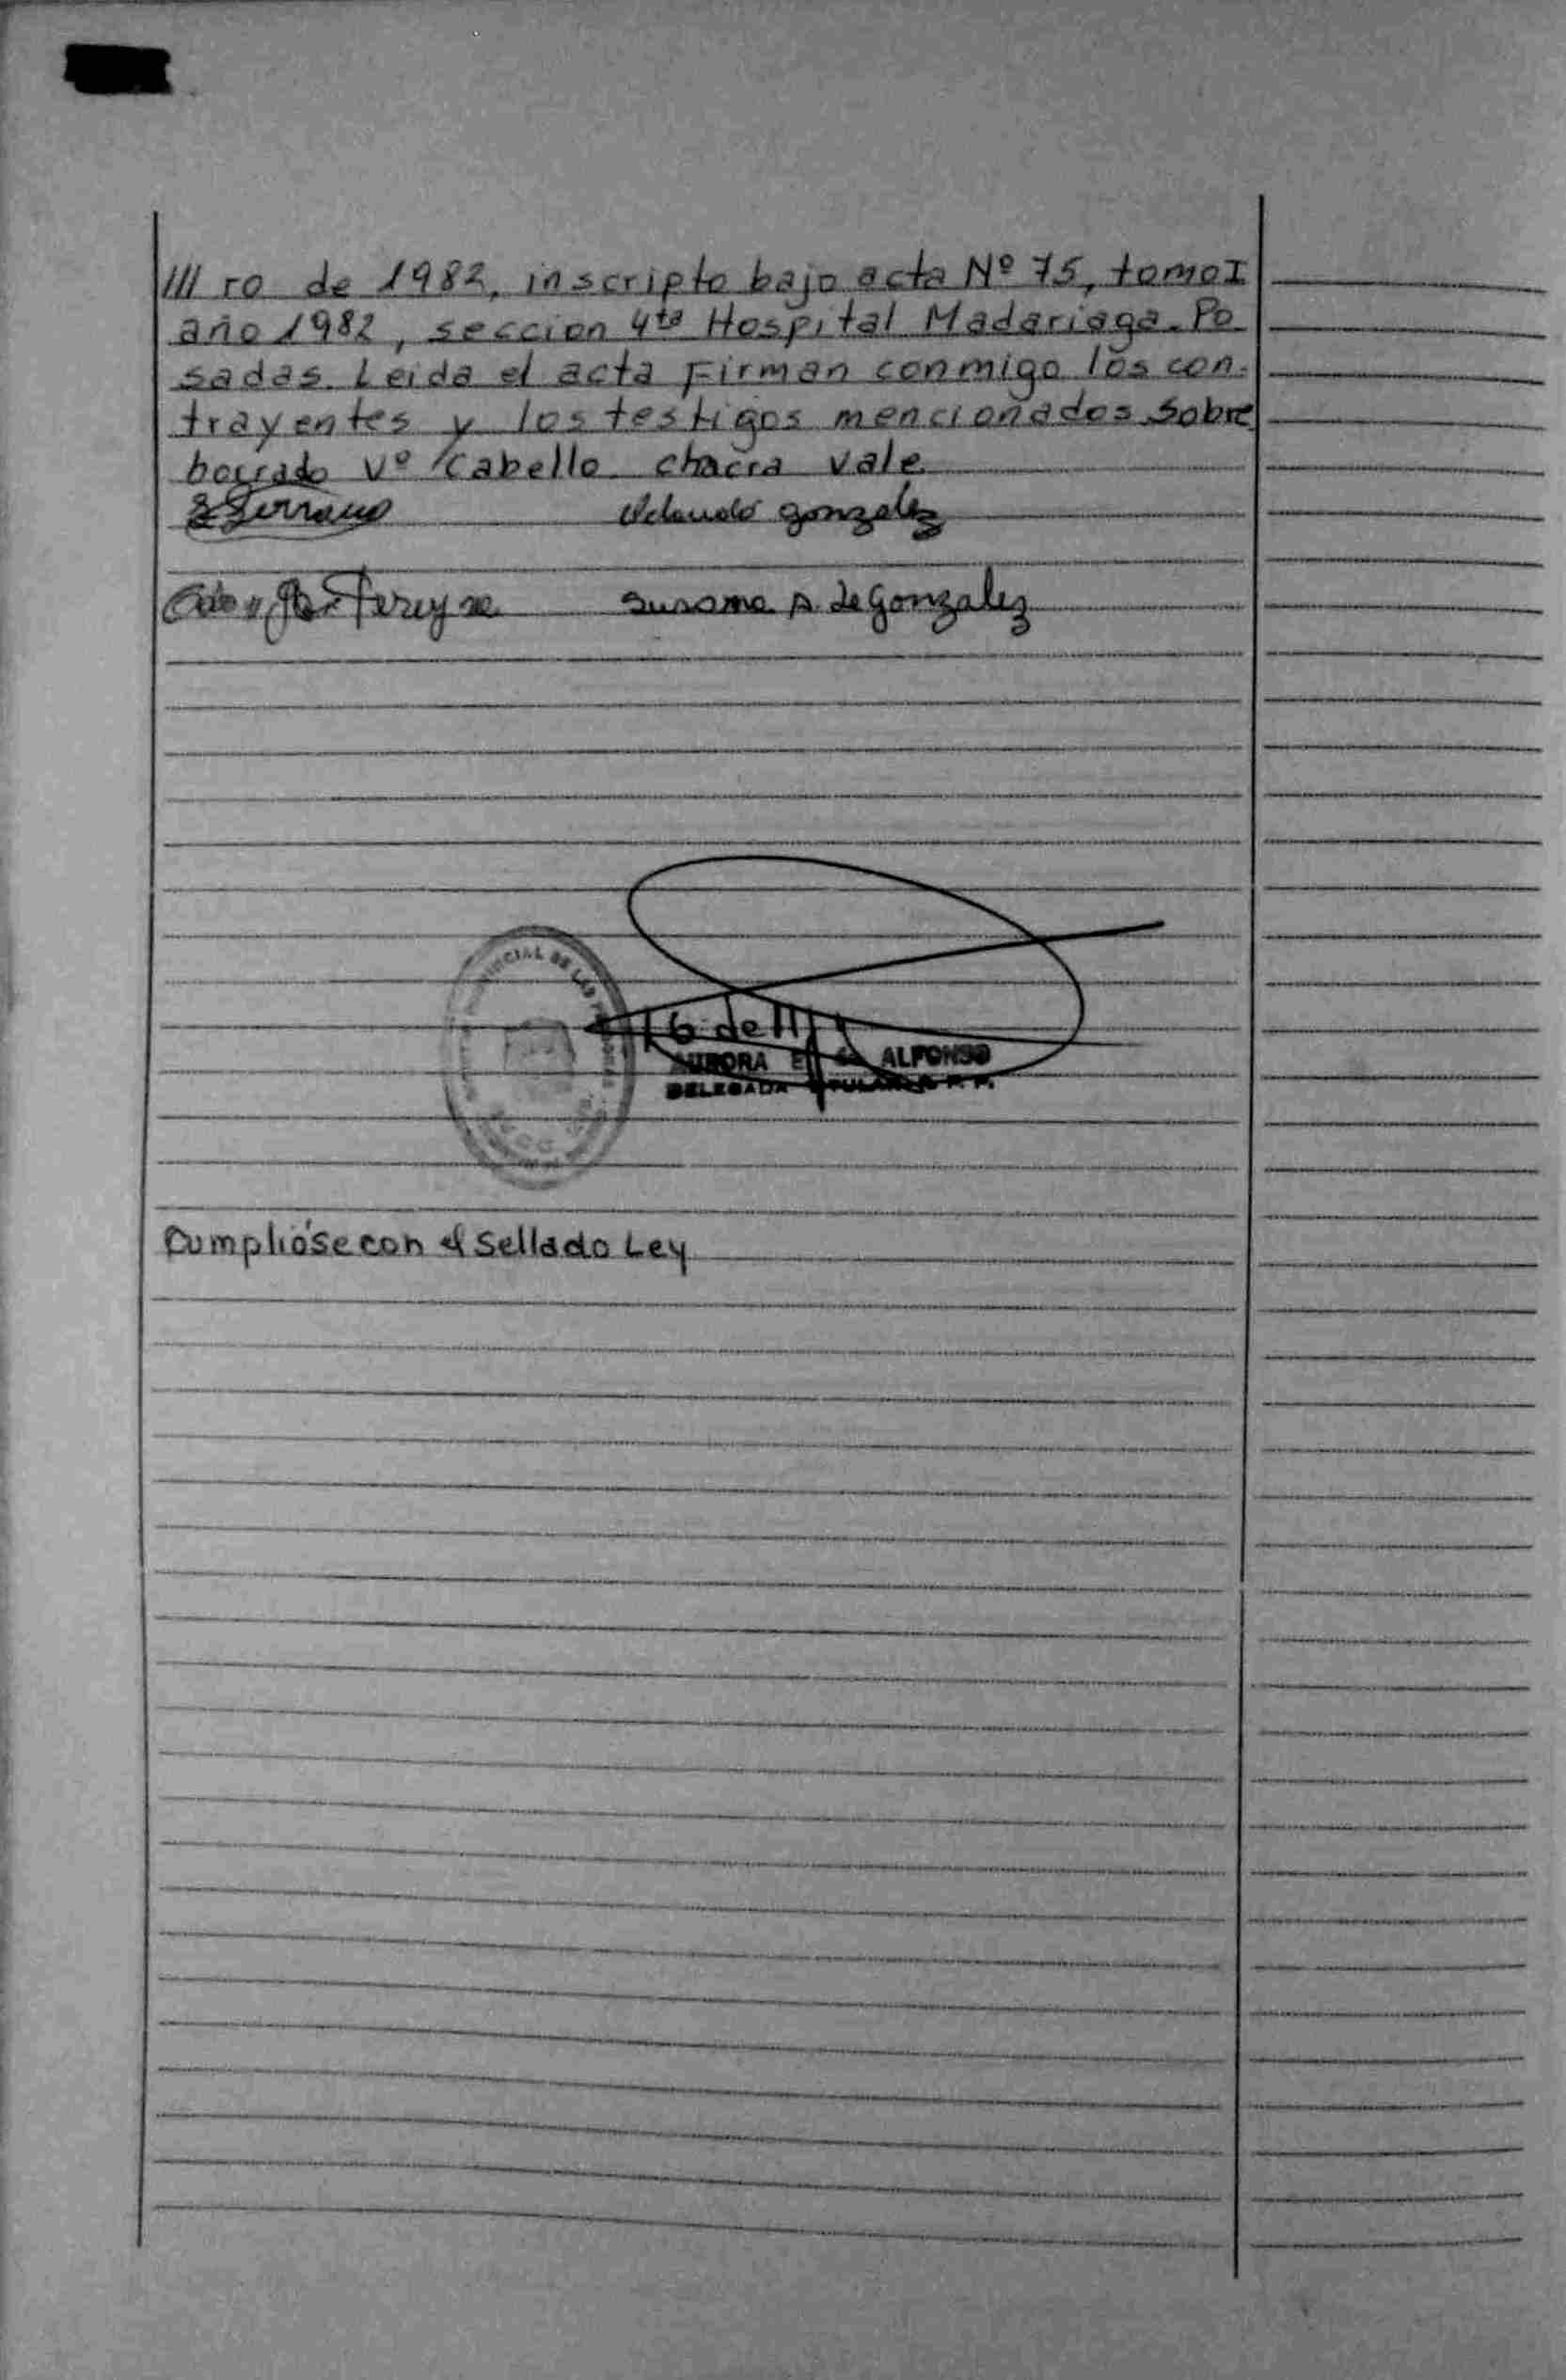 /// ro de 1982, inscripto bajo acta Nº 75, tomo I
año 1982, seccion 4ta Hospital Madariaga. Po
sadas. Leida el acta Firman conmigo los con-
trayentes y los testigos mencionados. Sobre
borrado Vº Cabello chacra Vale.
Serrano gonzalez
Pereyra Susana A. de Gonzalez
PROVINCIAL DE LAS
6 de 11
AURORA E. de ALFONSO
DELEGADA TITULAR R. P. P.
Cumplióse con el Sellado Ley